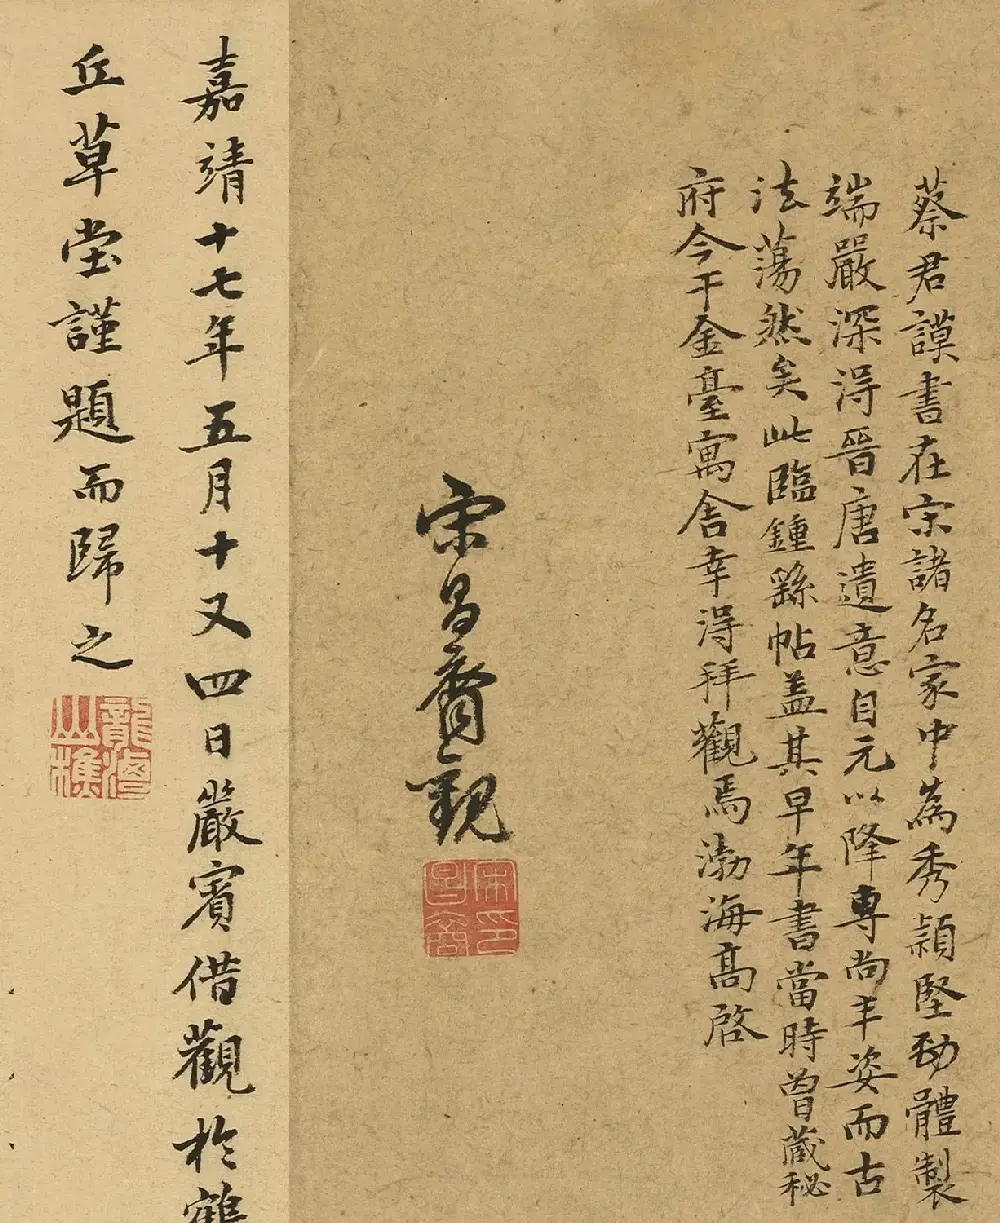 蔡君謨書在宋諸名家中為秀穎堅勁體製
端嚴深得晉唐遺意自元以降專尚丰姿而古
法蕩然矣此臨鍾繇帖蓋其早年書當時曾藏秘
府今于金臺寓舍幸得拜觀焉渤海高啓
宋昌裔觀
宋昌裔印
嘉靖十七年五月十又四日嚴賓借觀於鶴
丘草堂謹題而歸之
龍灣山樵